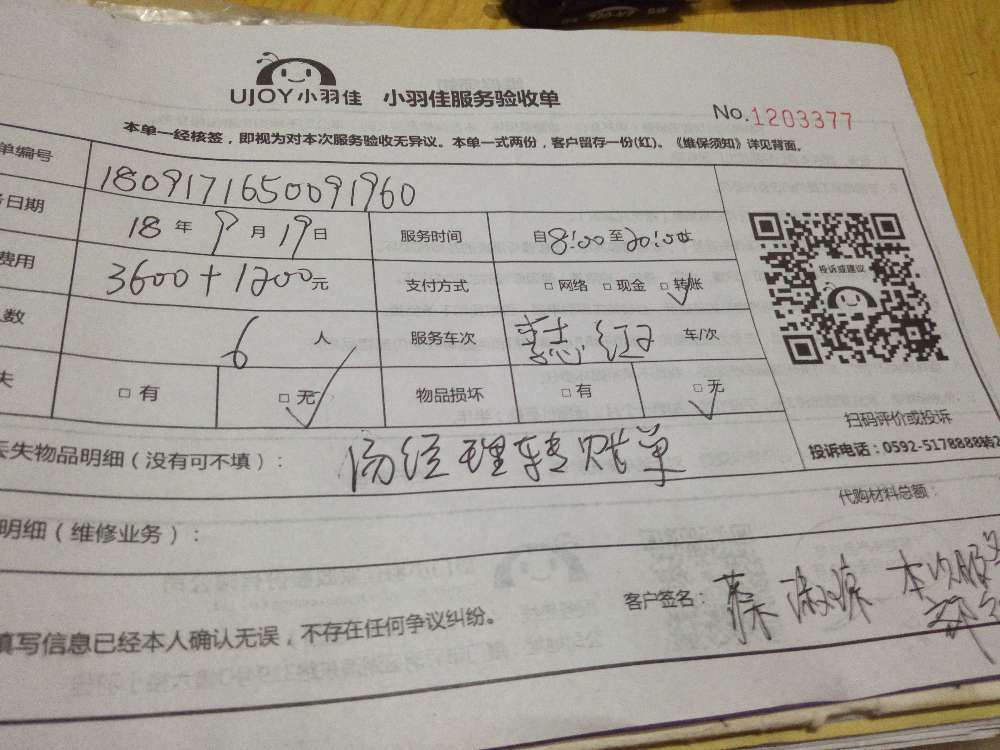 UJOY小羽佳 小羽佳服务验收单
No.1203377
本单一经核签，即视为对本次服务验收无异议。本单一式两份，客户留存一份(红)。《维保须知》详见背面。
单编号 1809171650091960
日期 18 年 9 月 19 日 服务时间 自8:00至20:00
费用 3600+1200元 支付方式 □ 网络 □ 现金 □ 转账
人数 6 人 服务车次 车/次
失 □ 有 □ 无 物品损坏 □ 有 □ 无
投诉或建议
扫码评价或投诉
投诉电话：0592-5178888转2
丢失物品明细（没有可不填）： 汤经理转账单
代购材料总额：
明细（维修业务）：
客户签名： 本次服
填写信息已经本人确认无误，不存在任何争议纠纷。